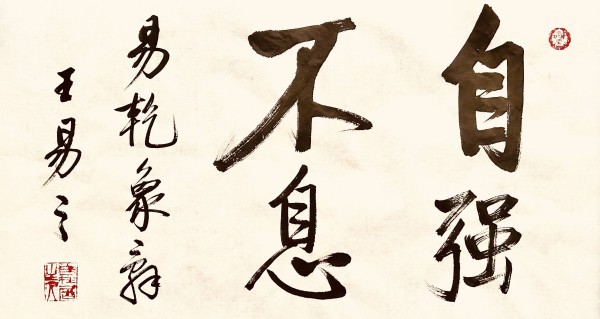 自强
不息
易乾象辞
王易之